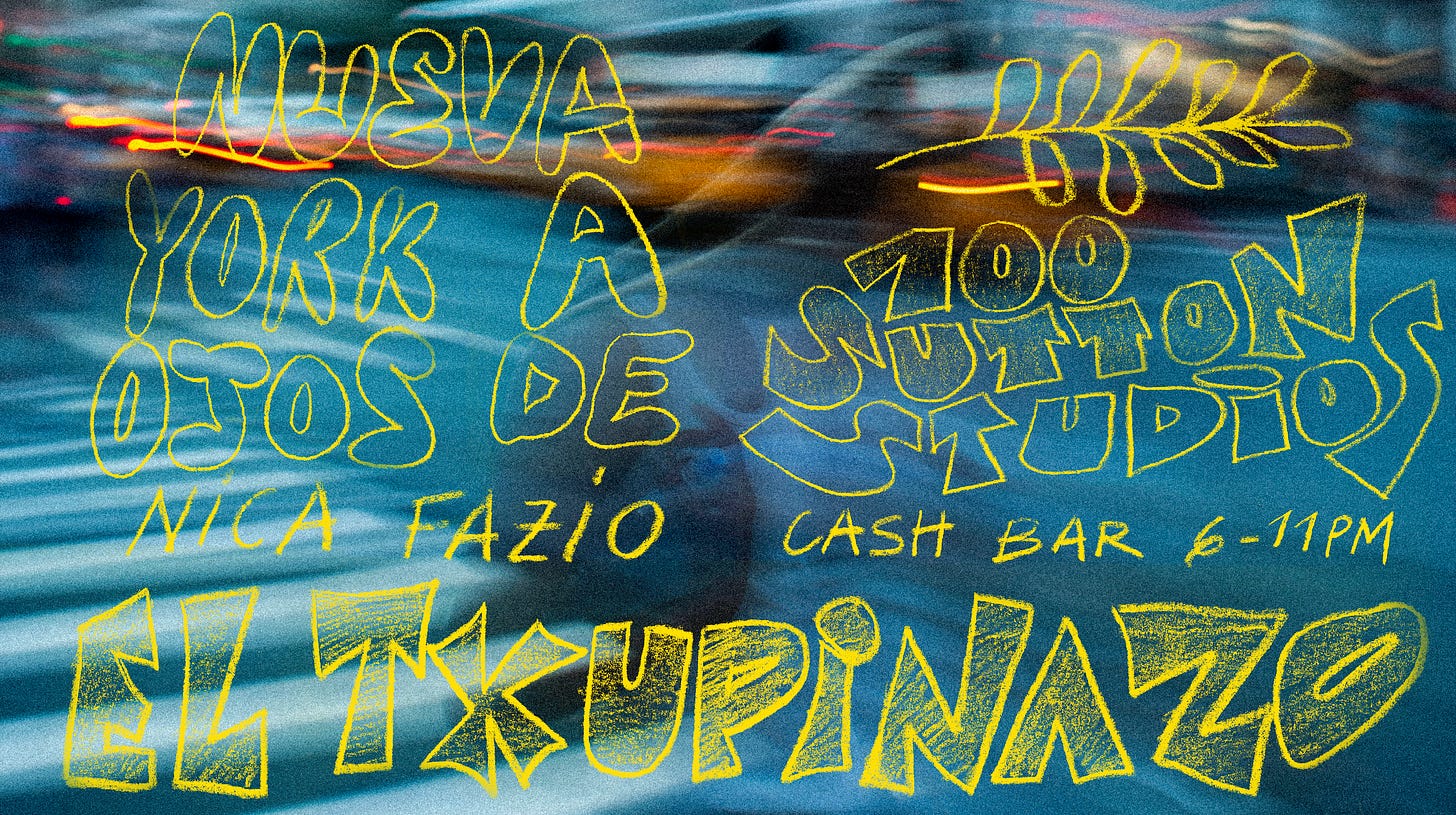 NUEVA
YORK A
OJOS DE
NiCA FAZiO
100
SUTTON
STUDiOS
CASH BAR 6-11PM
EL TXUPiNAZO